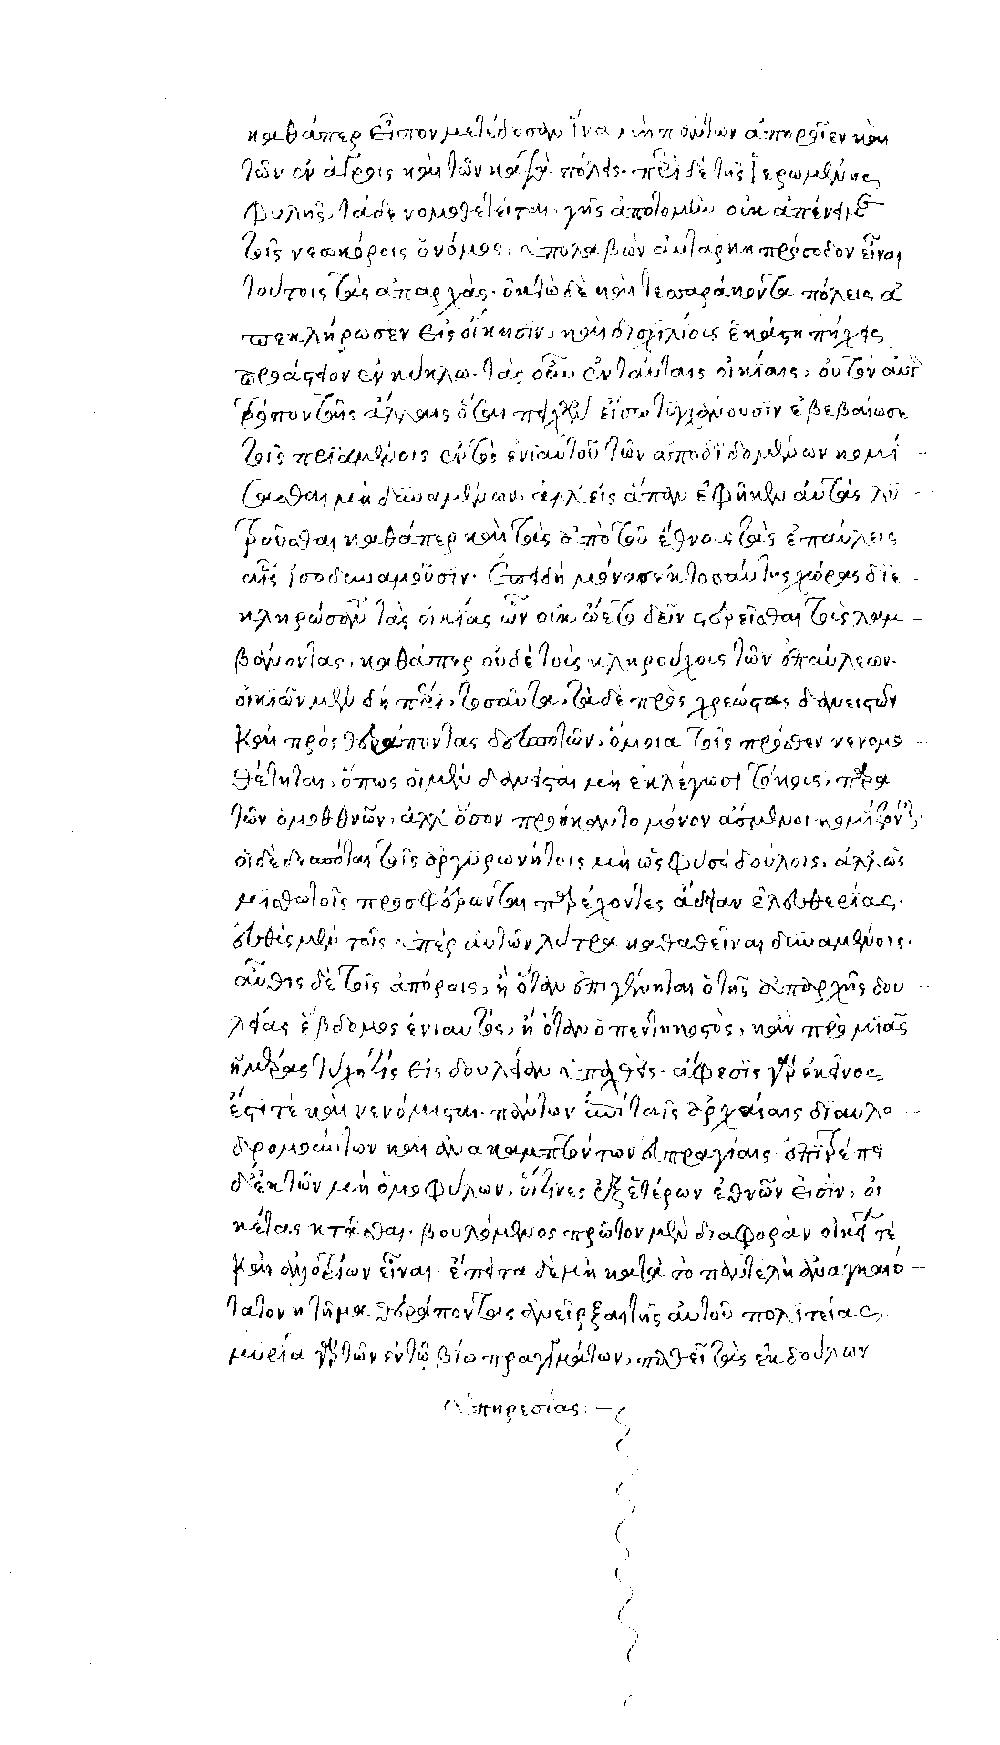 καθάπερ εἶπον μετέδοσαν ἵνα μὴ πάντων ἀπηργμένοι
τῶν ἐν ἀγροῖς καὶ τῶν κατὰ πόλεις. περὶ δὲ τῆς ἱερωμένης
φυλῆς, τάδε νομοθετεῖται. γῆς ἀποτομὴν οὐκ ἀπένειμε
τοῖς νεωκόροις ὁ νόμος, ὑπολαβὼν αὐτάρκη πρόσοδον εἶναι
τούτοις τὰς ἀπαρχάς. ὀκτὼ δὲ καὶ τεσσαράκοντα πόλεις ἀ
πεκλήρωσεν εἰς οἴκησιν, καὶ δισχιλίους ἑκάστῃ πήχεις
προάστειον ἐν κύκλῳ. τὰς οὖν ἐν ταύταις οἰκίας, οὐ τὸν αὐτὸν
τρόπον ταῖς ἄλλαις ὅσαι τειχῶν εἴσω τυγχάνουσιν ἐβεβαίωσε
τοῖς πριαμένοις ἐντὸς ἐνιαυτοῦ τῶν ἀποδιδομένων κομί
σασθαι μὴ δυναμένων. ἀλλ' εἰς ἅπαν ἐφῆκεν αὐτὰς λυ
τροῦσθαι καθάπερ καὶ τοῖς ἀπὸ τοῦ ἔθνους τὰς ἐπαύλεις
αἷς ἰσοδυναμοῦσιν. ἐπειδὴ μόνας ἐκ τοσαύτης χώρας διε
κληρώσαντο τὰς οἰκίας ὧν οὐκ ᾤετο δεῖν στερεῖσθαι τοὺς λαμ
βάνοντας, καθάπερ οὐδὲ τοὺς κληρούχους τῶν ἐπαύλεων.
οἰκιῶν μὲν δὴ πέρι, τοσαῦτα. τὰ δὲ πρὸς χρεώστας δανειστῶν
καὶ πρὸς θεράποντας δεσποτῶν, ὅμοια τοῖς πρόσθεν νενομο
θέτηται, ὅπως οἱ μὲν δανεισταὶ μὴ ἐκλέγωσι τόκους, παρὰ
τῶν ὁμοεθνῶν, ἀλλ' ὅσον προήκαντο μόνον ἄσμενοι κομίζωνται.
οἱ δὲ δεσπόται τοῖς ἀργυρωνήτοις μὴ ὡς φύσει δούλοις, ἀλλ' ὡς
μισθωτοῖς προσφέρωνται παρέχοντες ἄδειαν ἐλευθερίας.
εὐθὺς μὲν τοῖς ὑπὲρ αὑτῶν λύτρα καταθεῖναι δυναμένοις.
αὖθις δὲ τοῖς ἀπόροις, ἢ ὅταν ἐπιγένηται ὁ τῆς ἀπ' ἀρχῆς δου
λείας ἕβδομος ἐνιαυτός, ἢ ὅταν ὁ πεντηκοστός, κἂν πρὸ μιᾶς
ἡμέρας τύχῃ τις εἰς δουλείαν ὑπαχθείς. ἄφεσις γὰρ ἐκεῖνος
ἔστι τε καὶ νενόμισται. πάντων ἐπὶ ταῖς ἀρχαίαις διαυλο
δρομούντων καὶ ἀνακαμπτόντων εὐπραγίαις. ἐπιτρέπει
δ' ἐκ τῶν μὴ ὁμοφύλων, οἵτινες ἐξ ἑτέρων ἐθνῶν εἰσὶν, οἰ
κέτας κτᾶσθαι. βουλόμενος πρῶτον μὲν διαφορὰν οἰκείων τε
καὶ ἀνοικείων εἶναι. ἔπειτα δὲ μὴ κατὰ τὸ παντελὴ ἀναγκαιό
τατον κτῆμα θεράποντας ἀνεῖρξαι τῆς αὐτοῦ πολιτείας.
μυρία γὰρ τῶν ἐν τῷ βίῳ πραγμάτων, ποθεῖ τὰς ἐκ δούλων
ὑπηρεσίας.